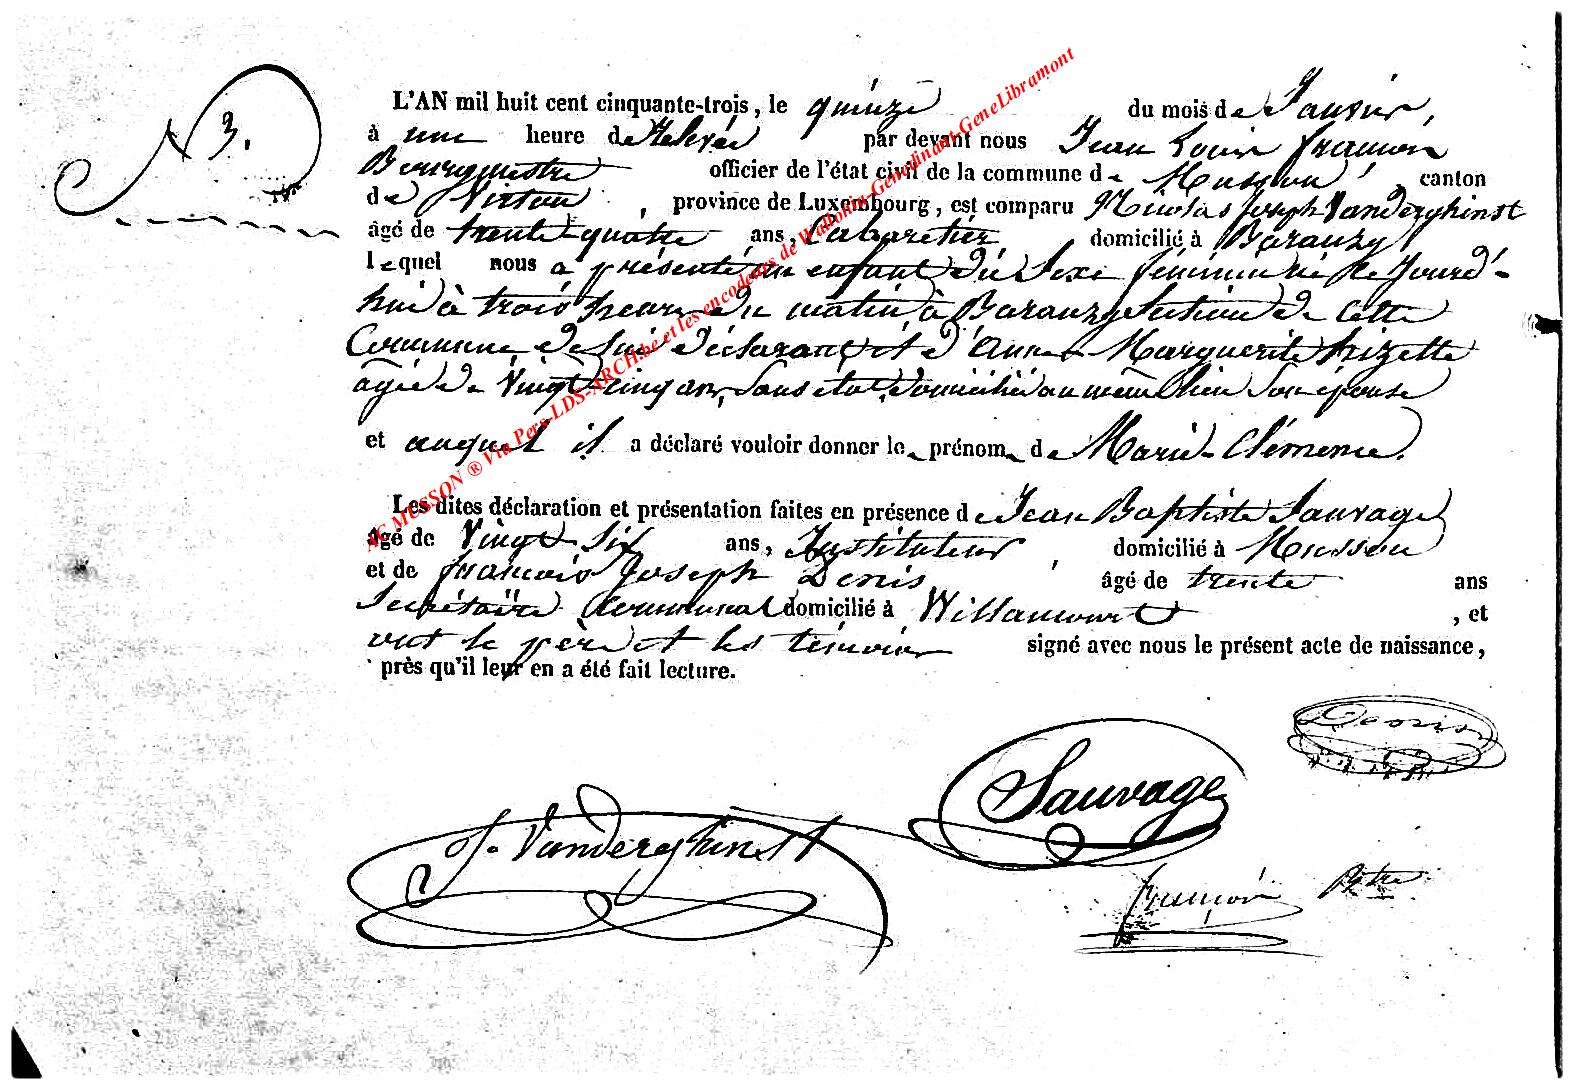 N 3.
L'AN mil huit cent cinquante-trois, le quinze du mois de Janvier,
à une heure de Relevée par devant nous Jean Louis françois
Bourgmestre officier de l'état civil de la commune de Musson, canton
de Virton, province de Luxembourg, est comparu Nicolas Joseph Vanderghinst
âgé de trente-quatre ans, Cabaretier domicilié à Baranzy
lequel nous a présenté un enfant du Sexe féminin né ce Jourd'-
hui à trois heures du matin à Baranzy Section de cette
Commune de lui déclarant et d'Anne Marguerite
âgée de Vingt cinq ans, Sans état, domicilié au même lieu Son épouse
et auquel il a déclaré vouloir donner le prénom de Marie-Clémence.
Les dites déclaration et présentation faites en présence de Jean Baptiste Sauvage
âgé de Vingt Six ans, Instituteur, domicilié à Musson
et de françois Joseph Denis âgé de trente ans
Secrétaire Communal domicilié à Willancourt, et
ont le père et les témoins signé avec nous le présent acte de naissance,
près qu'il leur en a été fait lecture.
Denis
Sauvage
J. Vanderghinst
françois Bstre
AC MUSSON ® Via Pers-LDS-ARCH.be et les encodeurs de Wallonia-Genedinant-GeneLibramont